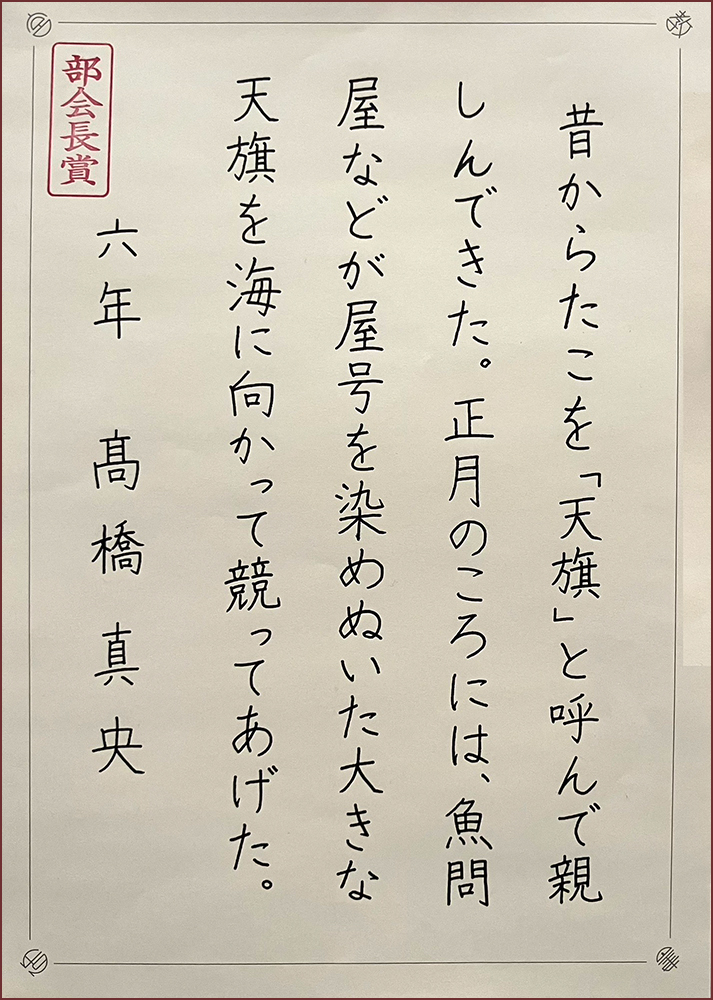 昔からたこを「天旗」と呼んで親
しんできた。正月のころには、魚問
屋などが屋号を染めぬいた大きな
天旗を海に向かって競ってあげた。
六年 髙橋真央
部会長賞